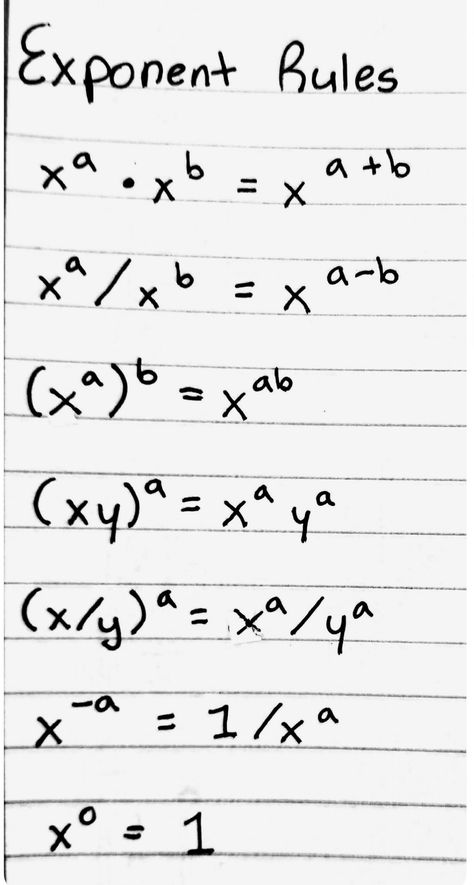 Exponent Rules
xᵃ · xᵇ = xᵃ⁺ᵇ
xᵃ/xᵇ = xᵃ⁻ᵇ
(xᵃ)ᵇ = xᵃᵇ
(xy)ᵃ = xᵃyᵃ
(x/y)ᵃ = xᵃ/yᵃ
x⁻ᵃ = 1/xᵃ
x⁰ = 1